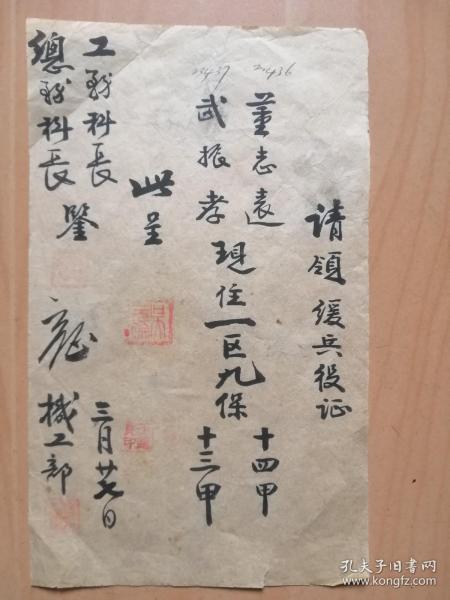 请領缓兵役证
2436
董志遠
十四甲
2437
武振孝
現住一区九保
十三甲
此呈
工務科長
總務科長
鑒
機工部
三月廿七日
孔夫子旧书网
www.kongfz.com